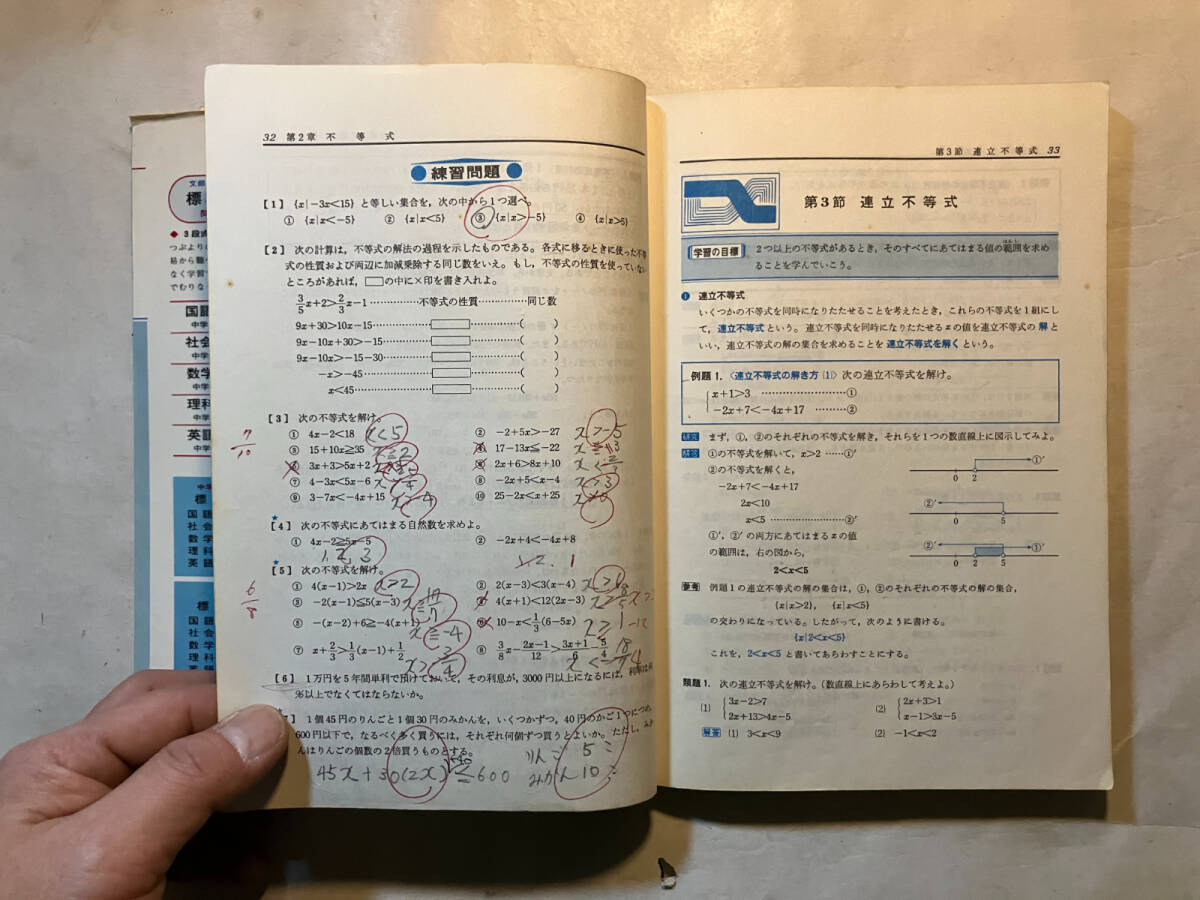 文部
標
3段式
つぶより
易から難へ
なく学習
でむりな
国語
中学
社会
中学
数学
中学
理科
中学
英語
中学
標
国語
社会
数学
理科
英語
標
国語
社会
数学
32 第2章 不等式
練習問題
【1】 {x|−3x<15} と等しい集合を，次の中から1つ選べ。
① {x|x<−5} ② {x|x<5} ③ {x|x>−5} ④ {x|x>5}
【2】 次の計算は，不等式の解法の過程を示したものである。各式に移るときに使った不等
式の性質および両辺に加減乗除する同じ数をいえ。もし，不等式の性質を使っていない
ところがあれば，□の中に×印を書き入れよ。
3/5x+2>2/3x−1……………不等式の性質……………同じ数
9x+30>10x−15……………□……………( )
9x−10x+30>−15……………□……………( )
9x−10x>−15−30……………□……………( )
−x>−45……………□……………( )
x<45……………□……………( )
【3】 次の不等式を解け。
7/10
① 4x−2<18 x<5 ② −2+5x>−27 x>−5
③ 15+10x≧35 x≧2 ④ 17−13x≦−22
⑤ 3x+3>5x+2 ⑥ 2x+6>8x+10
⑦ 4−3x<5x−6 ⑧ −2x+5<x−4 x>3
⑨ 3−7x<−4x+15 x>−4 ⑩ 25−2x<x+25
★
【4】 次の不等式にあてはまる自然数を求めよ。
① 4x−2≧5x−5 ② −2x+4<−4x+8
1, 2, 3 1
★
【5】 次の不等式を解け。
6/8
① 4(x−1)>2x x>2 ② 2(x−3)<3(x−4) x>6
③ −2(x−1)≦5(x−3) x≧17/7 ④ 4(x+1)<12(2x−3)
⑤ −(x−2)+6≧−4(x+1) x≧−4 ⑥ 10−x<1/3(6−5x)
⑦ x+2/3>1/3(x−1)+1/2 ⑧ 3/8x−(2x−1)/12>(3x+1)/6−5/4
【6】 1万円を5年間単利で預けておいて，その利息が，3000円以上になるには，利率は何
%以上でなくてはならないか。
1個45円のりんごと1個30円のみかんを，いくつかずつ，40円のかご1つにつめ
600円以下で，なるべく多く買うには，それぞれ何個ずつ買うとよいか。ただし，みか
んはりんごの個数の2倍買うものとする。
りんご 5こ
45x+30(2x)+40≦600 みかん 10こ
第3節 連立不等式 33
第3節 連立不等式
学習の目標 2つ以上の不等式があるとき，そのすべてにあてはまる値の範囲を求め
ることを学んでいこう。
❶ 連立不等式
いくつかの不等式を同時になりたたせることを考えたとき，これらの不等式を1組にし
て，連立不等式という。連立不等式を同時になりたたせるxの値を連立不等式の解と
いい，連立不等式の解の集合を求めることを連立不等式を解くという。
例題1.〈連立不等式の解き方(1)〉次の連立不等式を解け。
x+1>3 ……………①
−2x+7<−4x+17 ………②
研究 まず，①，②のそれぞれの不等式を解き，それらを1つの数直線上に図示してみよ。
解答 ①の不等式を解いて，x>2 ……①′
②の不等式を解くと，
−2x+7<−4x+17
2x<10
x<5 ……………②′
①′，②′の両方にあてはまるxの値
の範囲は，右の図から，
2<x<5
①′
0 2
②′
0 5
②′ ①′
0 2 5
参考 例題1の連立不等式の解の集合は，①，②のそれぞれの不等式の解の集合，
{x|x>2}，{x|x<5}
の交わりになっている。したがって，次のように書ける。
{x|2<x<5}
これを，2<x<5 と書いてあらわすことにする。
類題1. 次の連立不等式を解け。(数直線上にあらわして考えよ。)
(1) 3x−2>7 (2) 2x+3>1
2x+13>4x−5 x−1>3x−5
解答 (1) 3<x<9 (2) −1<x<2